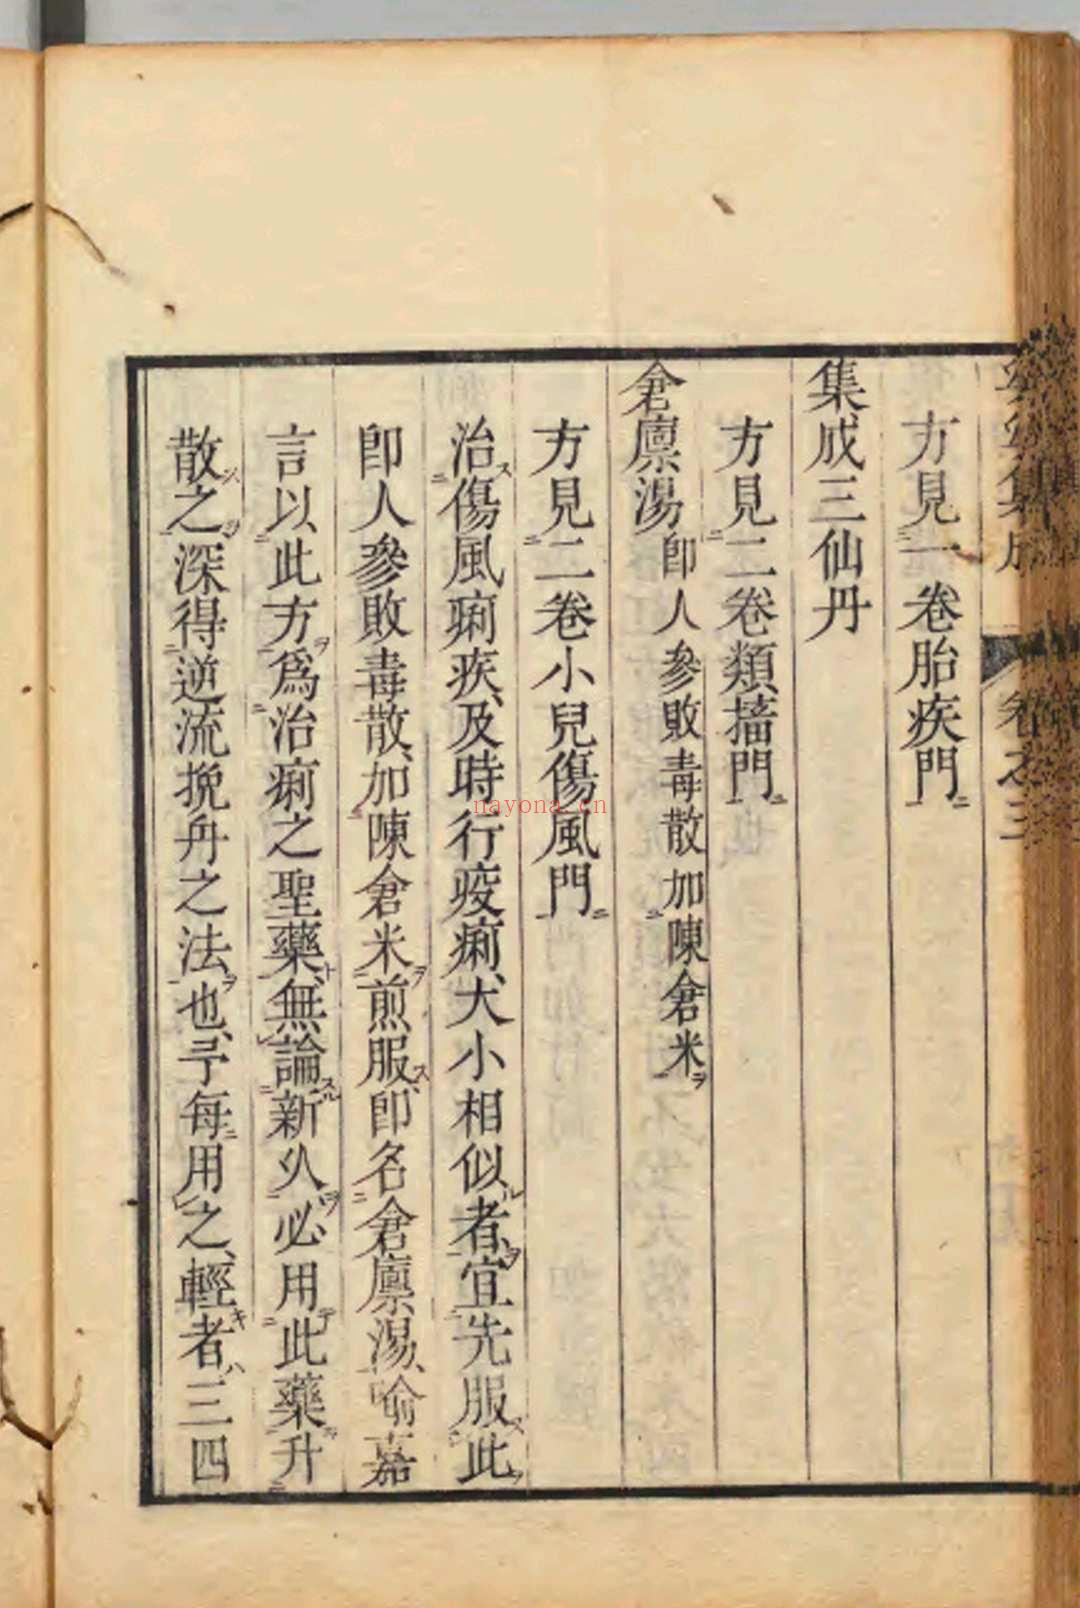 卷之三
方見一卷胎疾門
集成三仙丹
方見二卷類搐門
倉廩湯 卽人參敗毒散加陳倉米
方見二卷小兒傷風門
治傷風痢疾、及時行疫痢、大小相似者、宜先服此
卽人參敗毒散、加陳倉米煎服、卽名倉廩湯、喻嘉
言以此方爲治痢之聖藥、無論新久必用此藥升
散之、深得逆流挽舟之法也、予每用之、輕者三四
nayona.cn